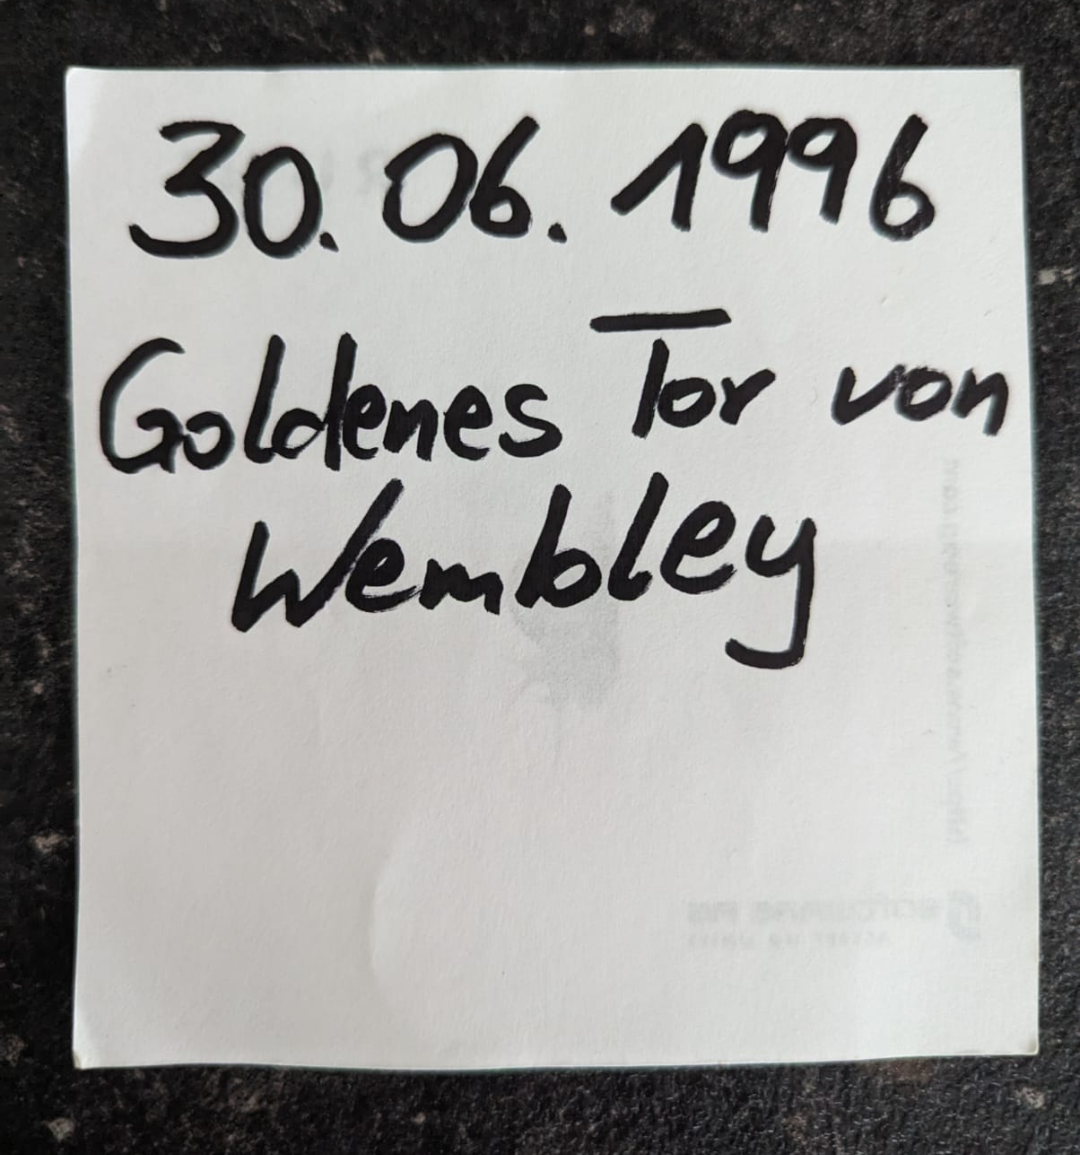 30.06.1996
Goldenes Tor von
Wembley